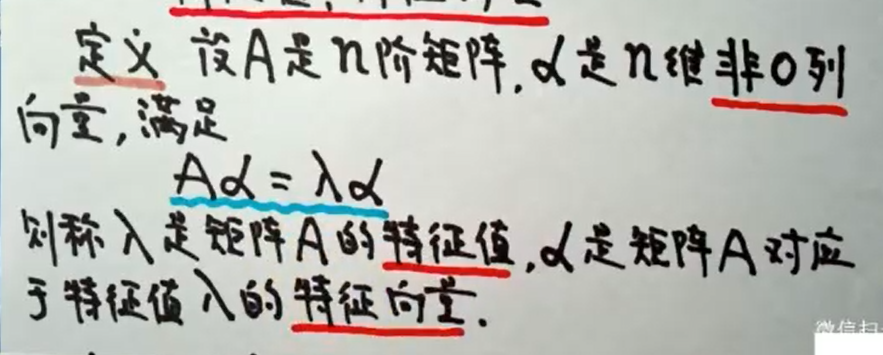 定义 设A是n阶矩阵,α是n维非0列
向量,满足
Aα=λα
则称λ是矩阵A的特征值,α是矩阵A对应
于特征值λ的特征向量.
微信扫